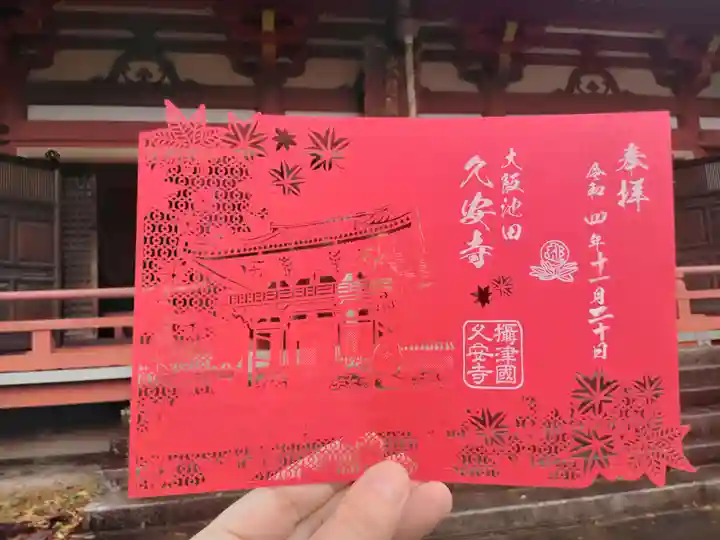 奉拝
令和四年十一月二十日
大阪池田
久安寺
攝津國
久安寺